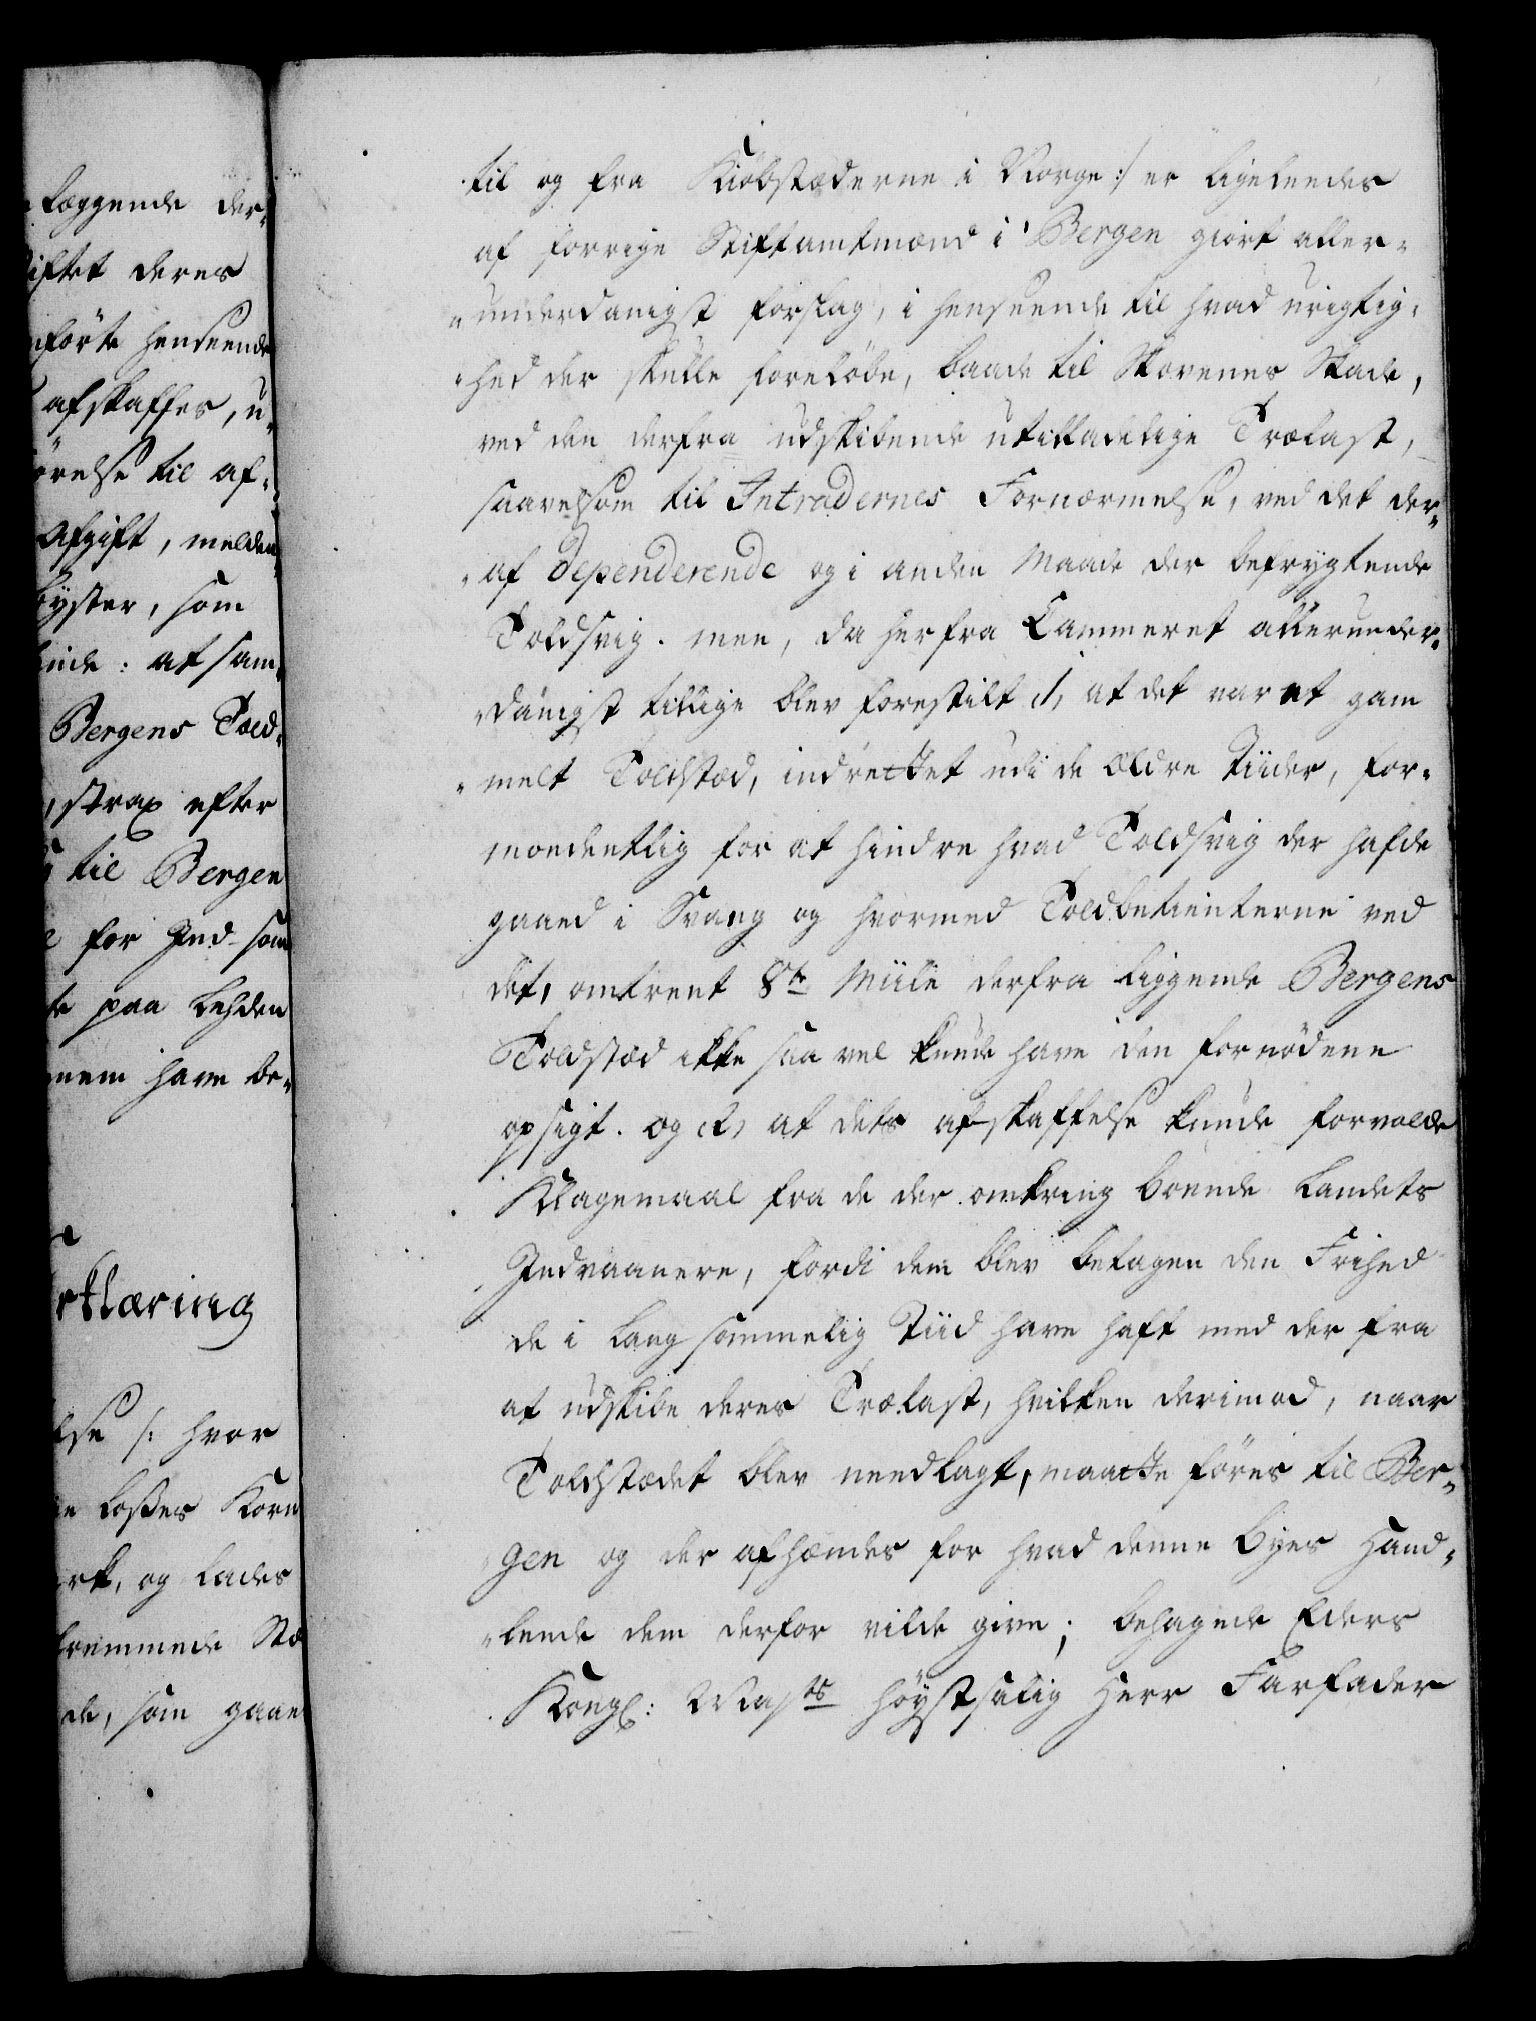 læggende der-
iftet deres
nførte henseende
afskaffes, u-
ørelse til af-
Afgift, melden
byster, som
inde: at sam-
Bergens Told-
, strax efter
til Bergen
for Ind- som
te paa Lehden
nem have be-
rklæring
lse /: hvor
e losses Korn
rk, og lades
fremmede Stæ
de, som gaae
til og fra Kiøbstæderne i Norge :/ er ligeleedes
af forrige Stiftamtmænd i Bergen giort aller-
underdanigst forslag, i henseende til hvad urigtig-
hed der skulle foreløbe, baade til Skovenes Skade,
ved den derfra udskibende utilladelige Trælast,
saavelsom til Intradernes Fornærmelse, ved det der-
af dependerende og i anden Maade der befrygtende
Toldsvig. men, da herfra Cammeret allerunder-
danigst tillige blev forestilt 1, at det var et gam
melt Toldstæd, indrettet udi de Ældre Tiider, for-
moedentlig for at hindre hvad Toldsvig der hafde
gaaed i Svang og hvormed Toldbetienterne ved
det, omtrent 8te Miile derfra liggende Bergens
Toldstæd ikke saa vel kunde have den fornødene
opsigt. og (2, at dets afskaffelse kunde forvolde
Klagemaal fra de der omkring boende Landets
Indvaanere, fordi dem blev betagen den Frihed
de i langsommelig Tiid have haft med der fra
at udskibe deres Trælast, hvilken derimod, naar
Toldstædet blev needlagt, maatte føres til Ber-
gen og der afhændes for hvad denne Byes Hand-
lende dem derfor vilde give; behagede Eders
Kongl: Mayts høystsalig Herr Farfader